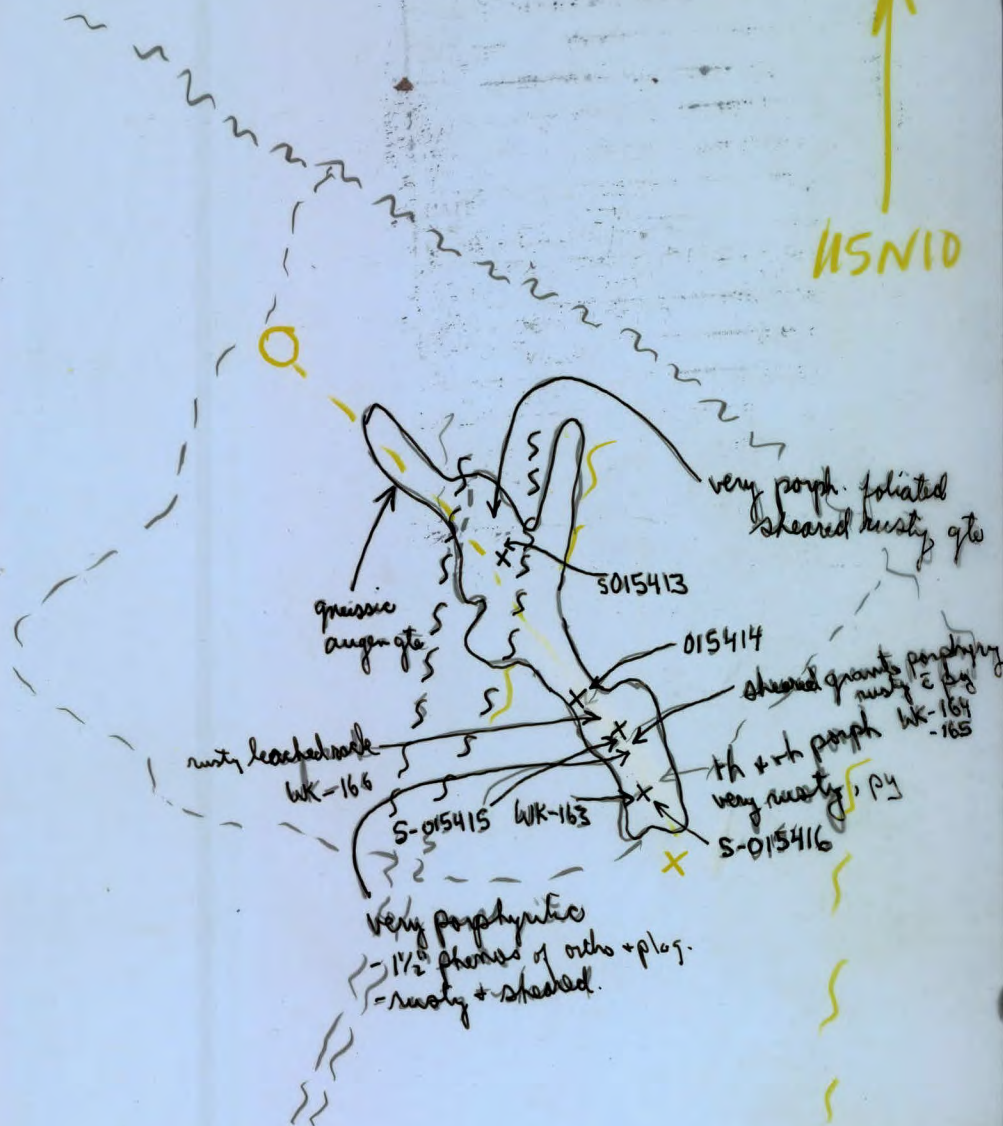 115N10
very porph. foliated
sheared rusty gte
S015413
gneissic
augen gte
015414
sheared granite porphyry
rusty c̄ py
WK-164
-165
rusty leached
WK-166
porph
very rusty, py
S-015415
WK-163
S-015416
very porphyritic
- 1½" phenos of ortho + plag.
- rusty + sheared.